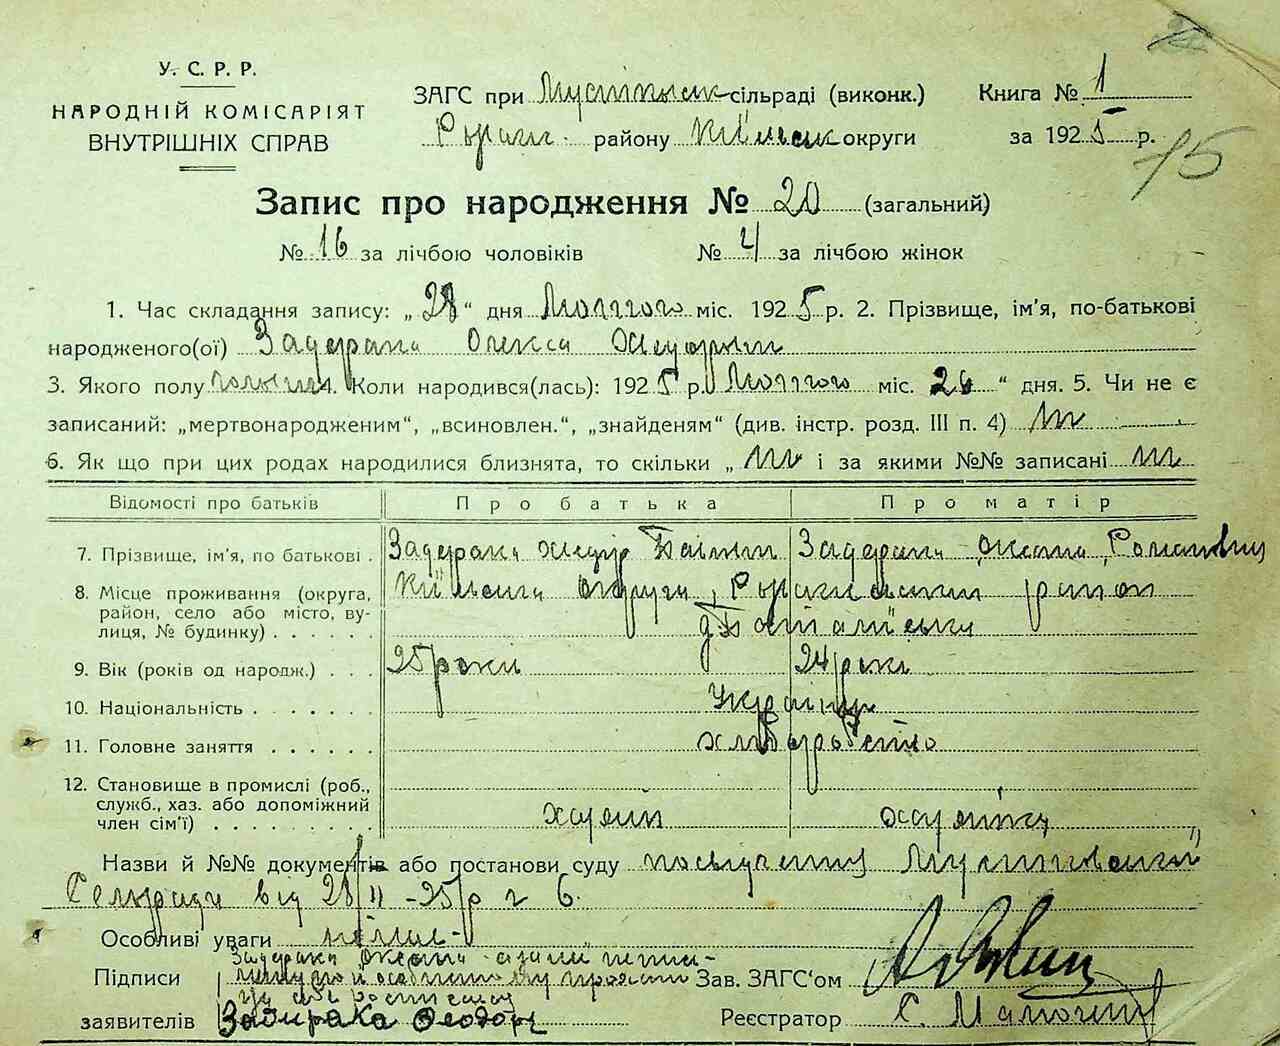 У. С. Р. Р.
НАРОДНІЙ КОМІСАРІЯТ
ВНУТРІШНІХ СПРАВ
ЗАГС при сільраді (виконк.)
району Київськ округи
Книга № 1
за 1925 р.
75
Запис про народження № 20 (загальний)
№ 16 за лічбою чоловіків № 4 за лічбою жінок
1. Час складання запису: „28“ дня Лютого міс. 1925 р. 2. Прізвище, ім'я, по-батькові
народженого(ої) Задерака Олекса
3. Якого полу 4. Коли народився(лась): 1925 р. Лютого міс. 26 “ дня. 5. Чи не є
записаний: „мертвонародженим“, „всиновлен.“, „знайденям“ (див. інстр. розд. III п. 4) ні
6. Як що при цих родах народилися близнята, то скільки „ ні і за якими №№ записані ні
Відомості про батьків Про батька Про матір
7. Прізвище, ім'я, по батькові . Задерака Задерака Оксана Романовна
8. Місце проживання (округа, Київська округа, район
район, село або місто, ву-
лиця, № будинку) . . . . . .
9. Вік (років од народж.) . . . 25 років 24 роки
10. Національність . . . . . . . Українці
11. Головне заняття . . . . . . хліборобство
12. Становище в промислі (роб.,
служб., хаз. або допоміжний
член сім'ї) . . . . . . . . . хазяїн хазяйка
Назви й №№ документів або постанови суду посвідчення
Сельради від 28/II -25 р № 6.
Особливі уваги немає
Задерака Оксана
Підписи Зав. ЗАГС'ом
заявителів Задирака Феодор Реєстратор